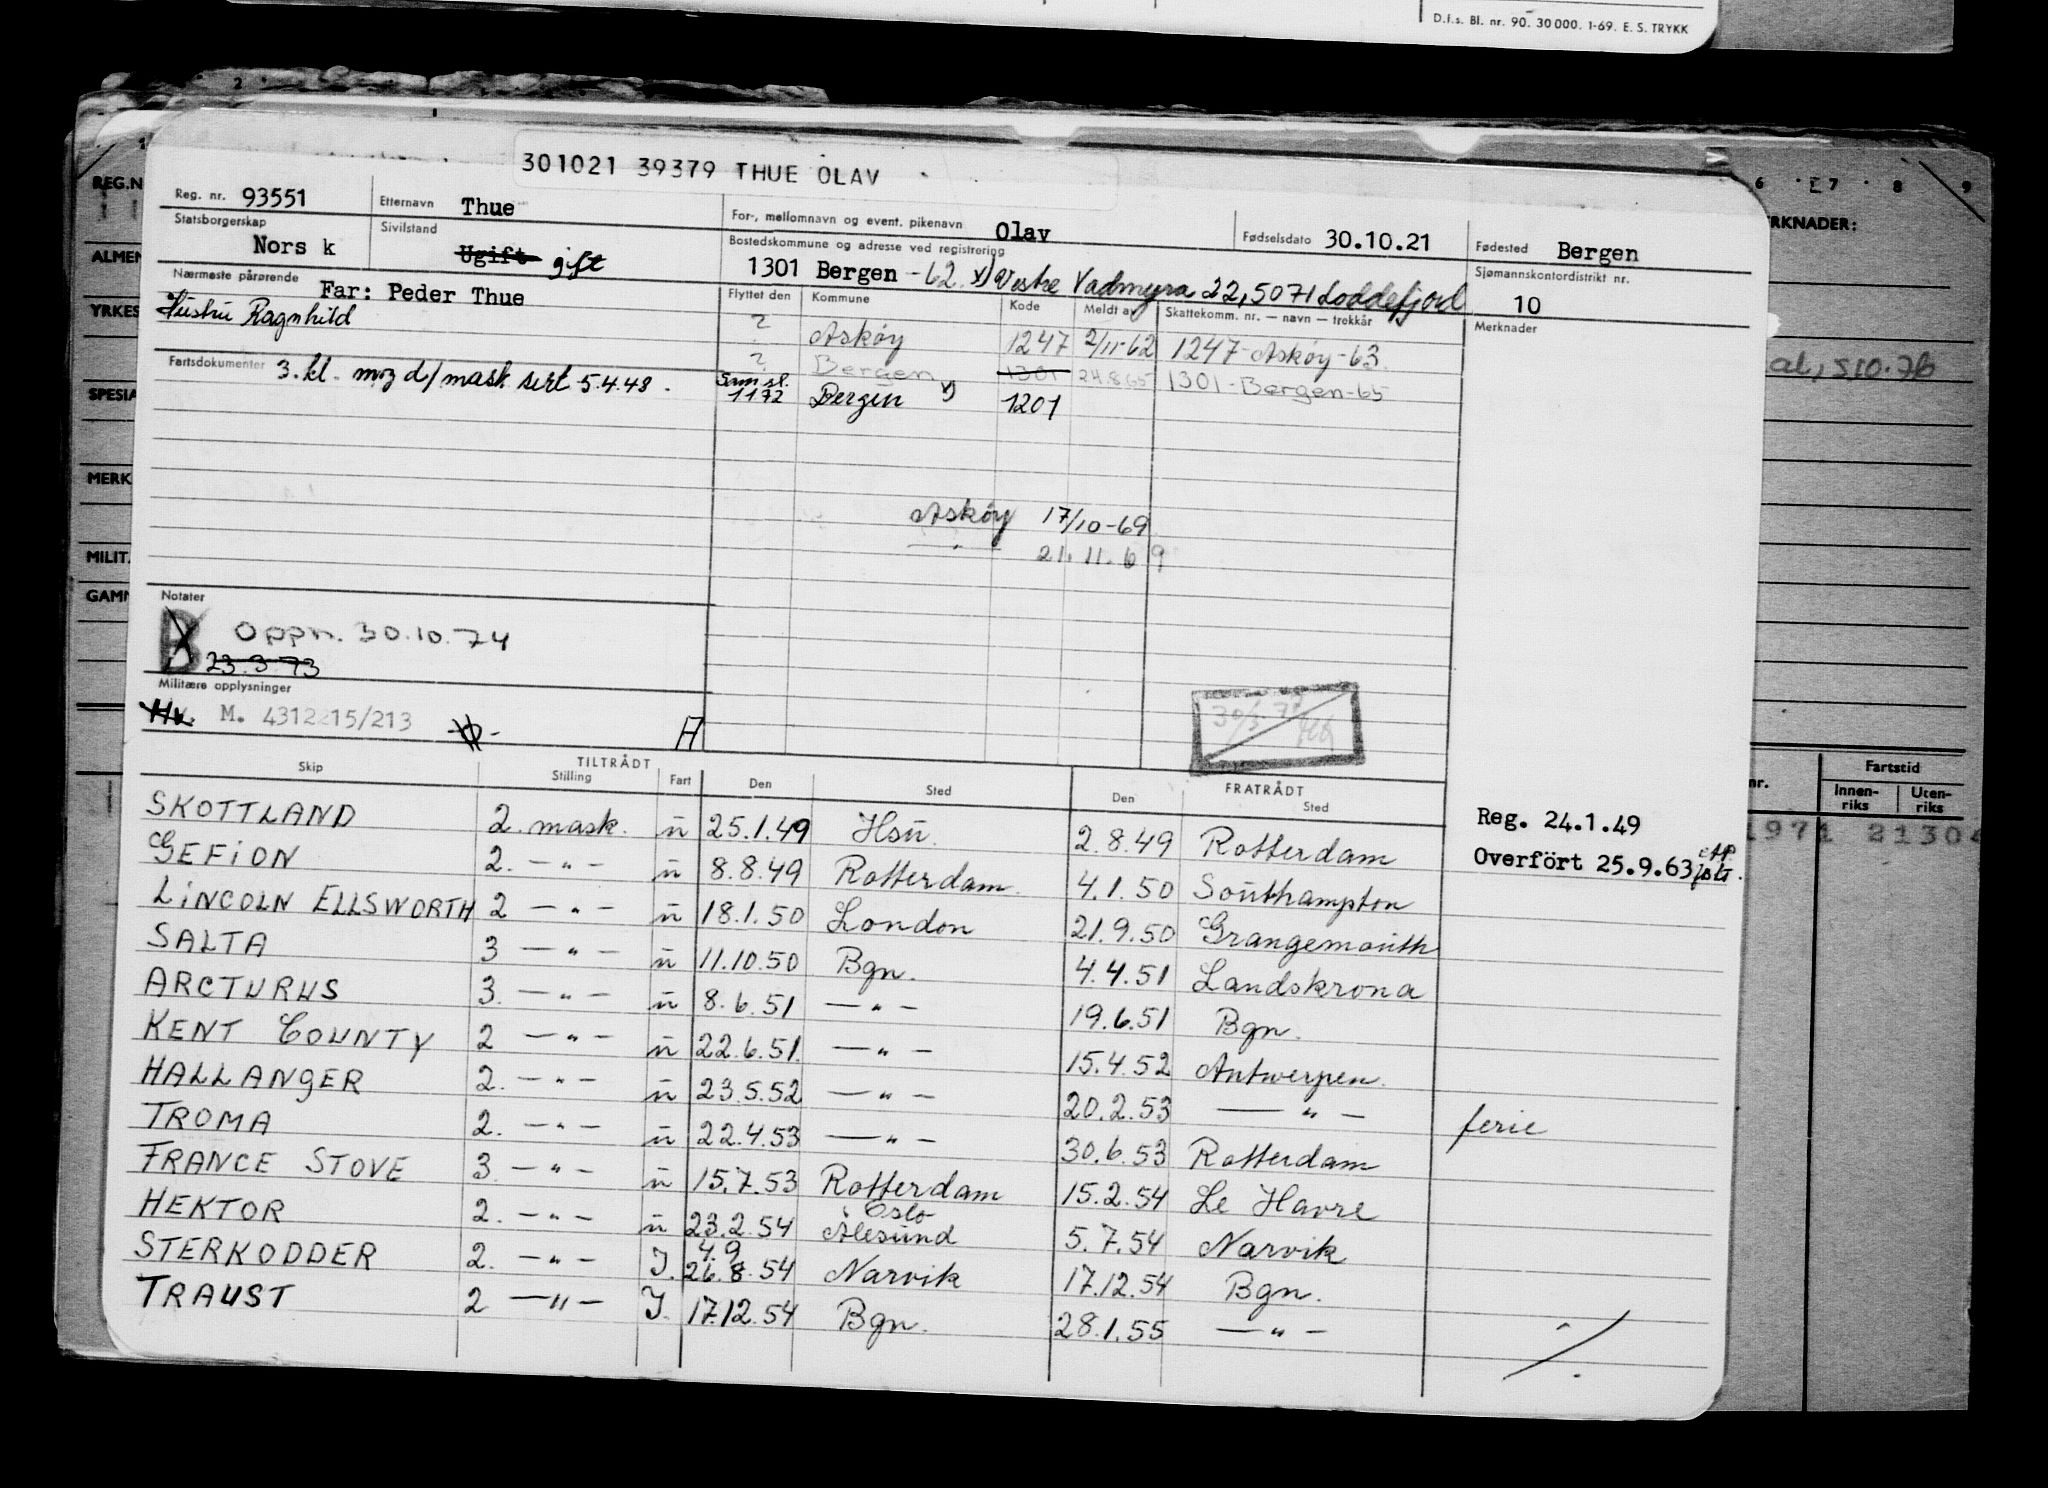 D.f.s. Bl. nr. 90. 30 000. 1-69. E. S. TRYKK
2
REG.N
ALMEN
YRKES
SPESIA
MERK
MILIT
GAMM
6 7 8 9
ERKNADER:
nr.
Fartstid
Innen-
riks
Uten-
riks
1971 21304
301021 39379 THUE OLAV
Reg. nr. 93551 Etternavn Thue For-, mellomnavn og event. pikenavn Olav Fødselsdato 30.10.21 Fødested Bergen
Statsborgerskap Norsk Sivilstand Ugift gift Bostedskommune og adresse ved registrering 1301 Bergen -62. x) Vestre Vadmyra 22, 5071 Loddefjord Sjømannskontordistrikt nr. 10
Nærmeste pårørende Far: Peder Thue
Hustru Ragnhild
Flyttet den Kommune Kode Meldt av Skattekomm. nr. — navn — trekkår Merknader
? Askøy 1247 2/11-62 1247-Askøy-63.
? Bergen 1301 24.8.65 1301-Bergen-65
Fartsdokumenter 3. kl. m/z d/mask sert 5.4.48.
Sam.sl. 1172 Bergen x) 1201
Askøy 17/10-69
— " — 21.11.69
Notater
B Oppn. 30.10.74
23.3.73
Militære opplysninger
Hv. M. 4312215/213 A
Skip TILTRÅDT Stilling Fart Den Sted FRATRÅDT Den Sted
Reg. 24.1.49
Overført 25.9.63
SKOTTLAND 2. mask. u 25.1.49 Hsu. 2.8.49 Rotterdam
GEFION 2. — " — u 8.8.49 Rotterdam 4.1.50 Southampton
LINCOLN ELLSWORTH 2 — " — u 18.1.50 London 21.9.50 Grangemouth
SALTA 3 — " — u 11.10.50 Bgn. 4.4.51 Landskrona
ARCTURUS 3. — " — u 8.6.51 — " — 19.6.51 Bgn.
KENT COUNTY 2 — " — u 22.6.51. — " — 15.4.52 Antwerpen.
HALLANGER 2. — " — u 23.5.52 — " — 20.2.53 — " — ferie
TROMA 2. — " — u 22.4.53 — " — 30.6.53 Rotterdam
FRANCE STOVE 3. — " — u 15.7.53 Rotterdam 15.2.54 Le Havre
HEKTOR 2. — " — u 23.2.54 Oslo Ålesund 5.7.54 Narvik
STERKODDER 2. — " — I. 4.9 26.8.54 Narvik 17.12.54 Bgn.
TRAUST 2 — " — I. 17.12.54 Bgn. 28.1.55 — " —